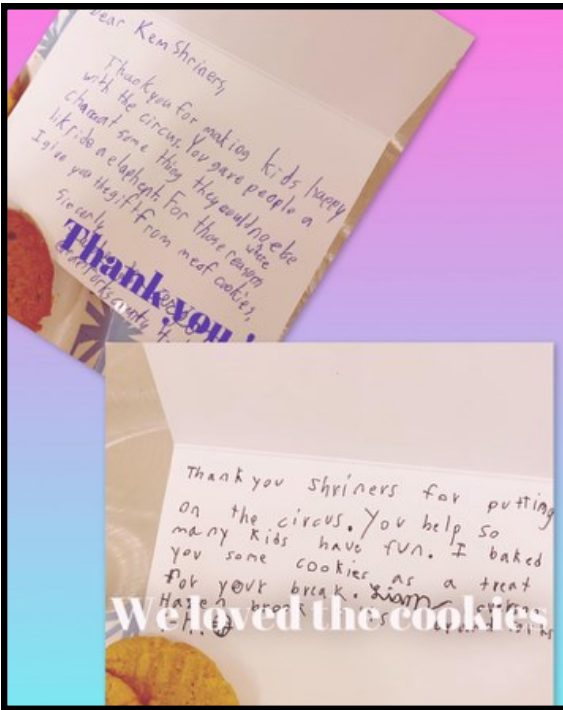 Dear Kem Shriners,
Thank you for making kids happy
with the circus. You gave people a
some thing they could no else
like ride a elaphent. For those reason
I give you the gift from me of cookies,
Sincerly
Thank you
Thank you shriners for putting
on the circus. You help so
many kids have fun. I baked
you some cookies as a treat
for your break. Liam
We loved the cookies